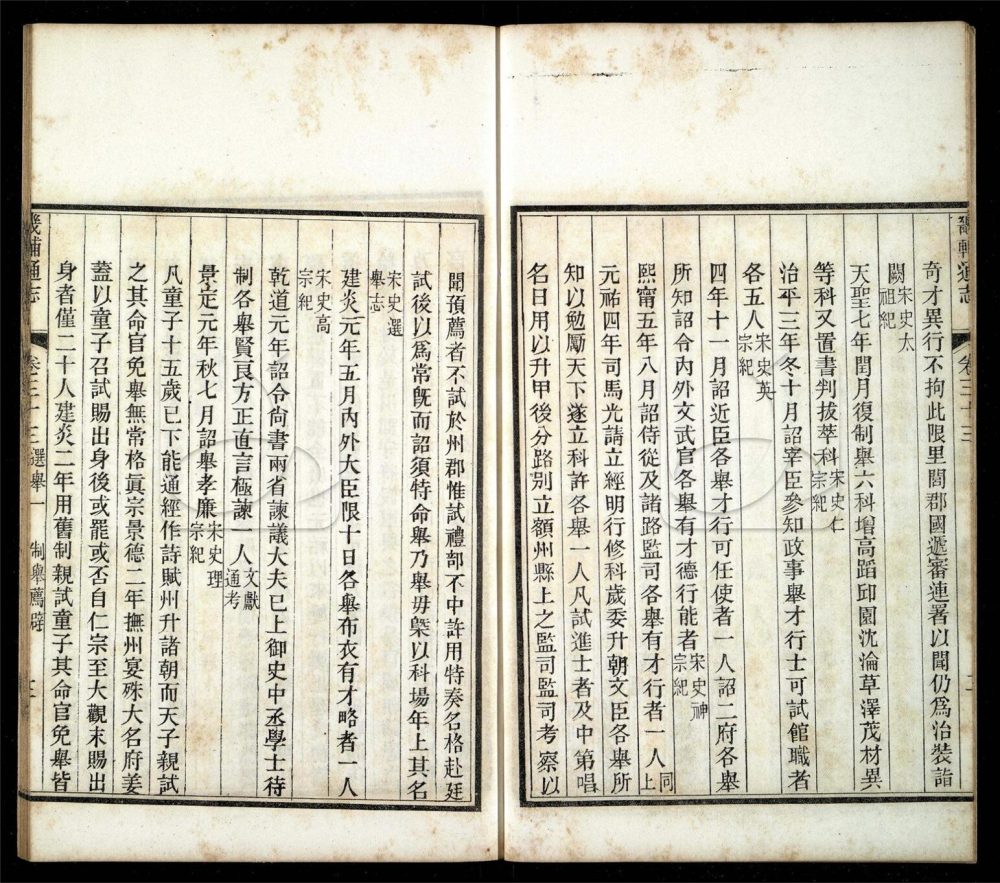 畿輔通志
卷三十三
奇才異行不拘此限里閭郡國遞審連署以聞仍爲治裝詣
闕宋史太祖紀
天聖七年閏月復制舉六科增高蹈邱園沈淪草澤茂材異
等科又置書判拔萃科宋史仁宗紀
治平三年冬十月詔宰臣參知政事舉才行士可試館職者
各五人宋史英宗紀
四年十一月詔近臣各舉才行可任使者一人詔二府各舉
所知詔令內外文武官各舉有才德行能者宋史神宗紀
熙甯五年八月詔侍從及諸路監司各舉有才行者一人同上
元祐四年司馬光請立經明行修科歲委升朝文臣各舉所
知以勉勵天下遂立科許各舉一人凡試進士者及中第唱
名日用以升甲後分路別立額州縣上之監司監司考察以
聞預薦者不試於州郡惟試禮部不中許用特奏名格赴廷
試後以爲常旣而詔須特命舉乃舉毋槩以科場年上其名
宋史選舉志
建炎元年五月內外大臣限十日各舉布衣有才略者一人
宋史高宗紀
乾道元年詔令尙書兩省諫議大夫已上御史中丞學士待
制各舉賢良方正直言極諫一人文獻通考
景定元年秋七月詔舉孝廉宋史理宗紀
凡童子十五歲已下能通經作詩賦州升諸朝而天子親試
之其命官免舉無常格眞宗景德二年撫州宴殊大名府姜
蓋以童子召試賜出身後或罷或否自仁宗至大觀末賜出
身者僅二十人建炎二年用舊制親試童子其命官免舉皆
畿輔通志
卷三十三 選舉一 制舉薦辟